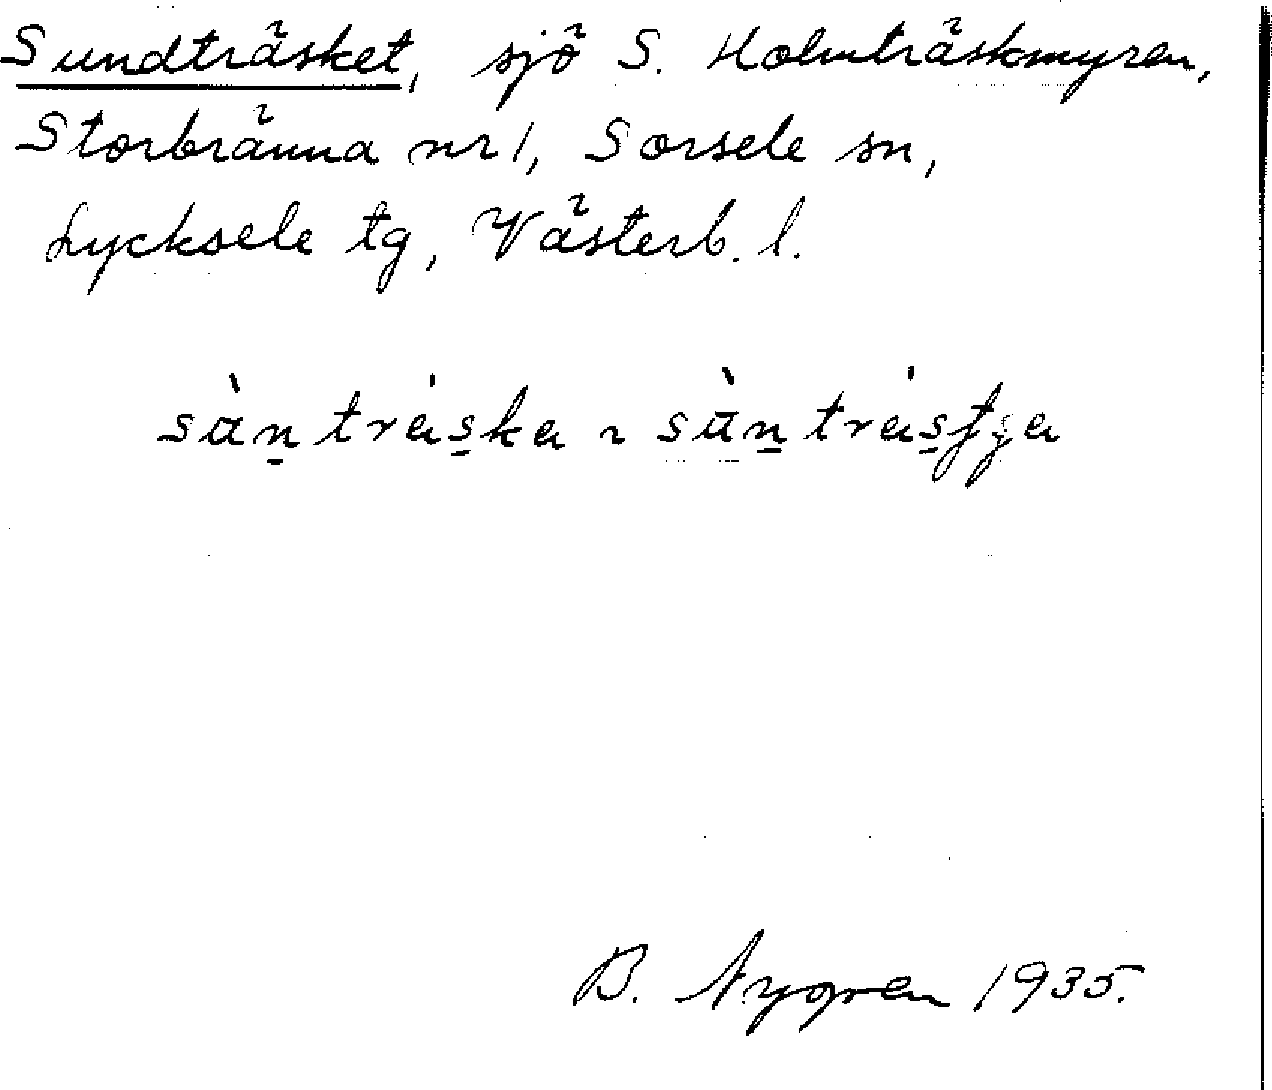 Sundträsket, sjö S. Holmträskmyren,
Storbränna nr 1, Sorsele sn,
Lycksele tg, Västerb. l.
sùn tráska ~ sùn trástja
B. Nygren 1935.